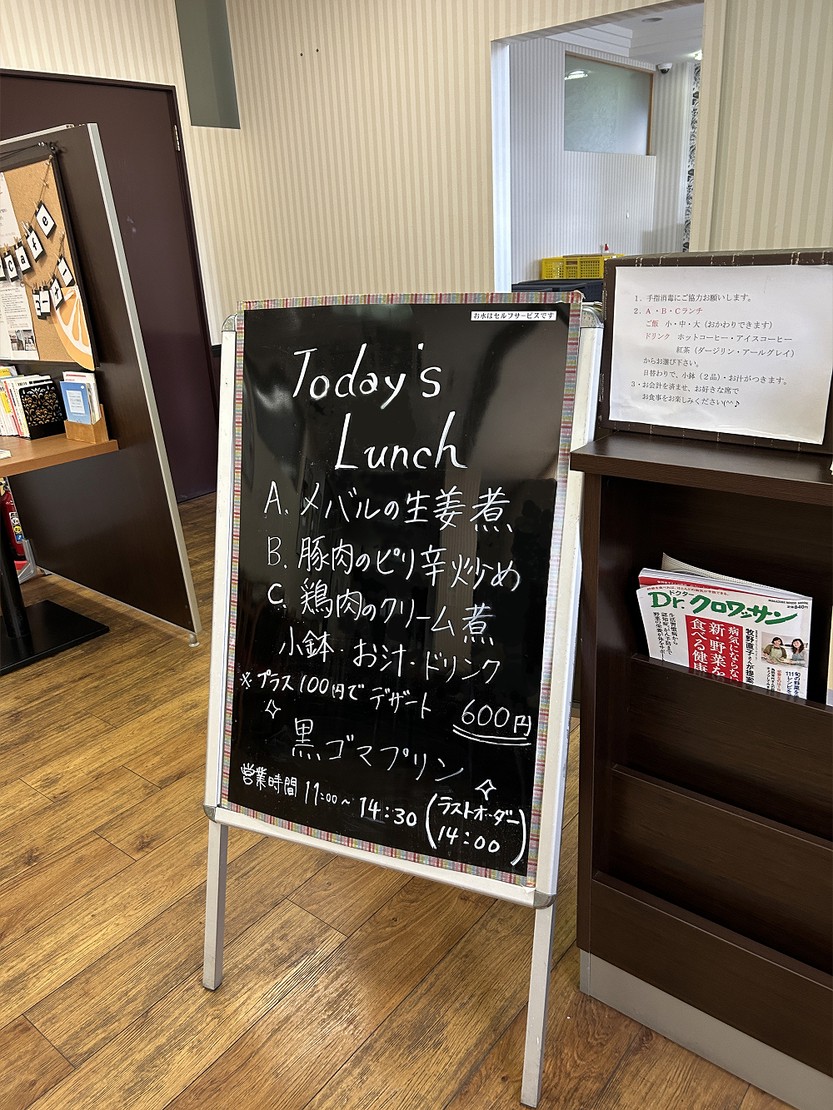 お水はセルフサービスです
Today's
Lunch
A. メバルの生姜煮
B. 豚肉のピリ辛炒め
C. 鶏肉のクリーム煮
小鉢・お汁・ドリンク
600円
※プラス100円でデザート
黒ゴマプリン
営業時間 11:00~14:30 (ラストオーダー
14:00)
1．手指消毒にご協力お願いします。
2．A・B・Cランチ
ご飯 小・中・大（おかわりできます）
ドリンク ホットコーヒー・アイスコーヒー
紅茶（ダージリン・アールグレイ）
からお選び下さい。
日替わりで、小鉢（2品）・お汁がつきます。
3・お会計を済ませ、お好きな席で
お食事をお楽しみください(^^♪
ドクター
Dr.クロワッサン
病気にならない
新・野菜を
食べる健康
牧野直子さんが提案
Cafe